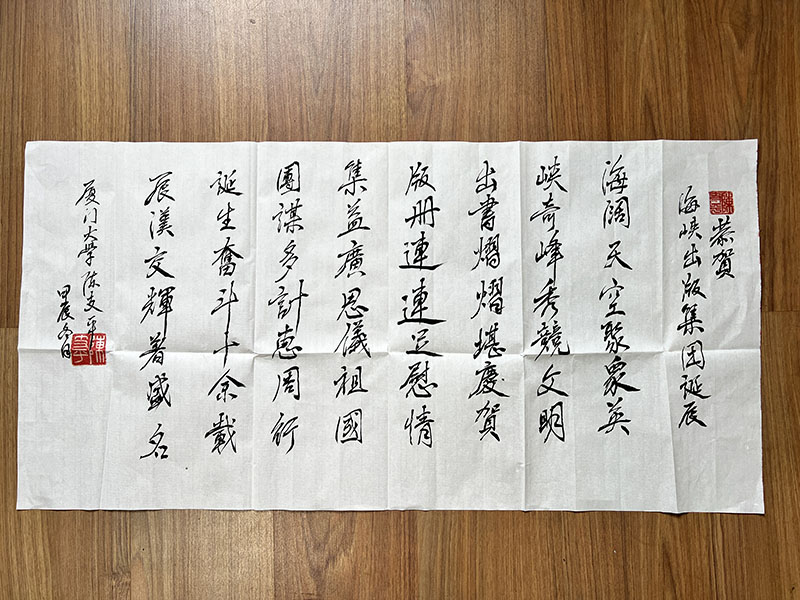 恭賀
海峡出版集团诞辰
海阔天空聚衆英
峡奇峰秀競文明
出書熠熠堪慶賀
版册連連足慰情
集益廣思儀祖國
團謀多計惠周行
誕生奮斗十余載
辰漢交輝著盛名
厦门大学陈支平
甲辰冬日